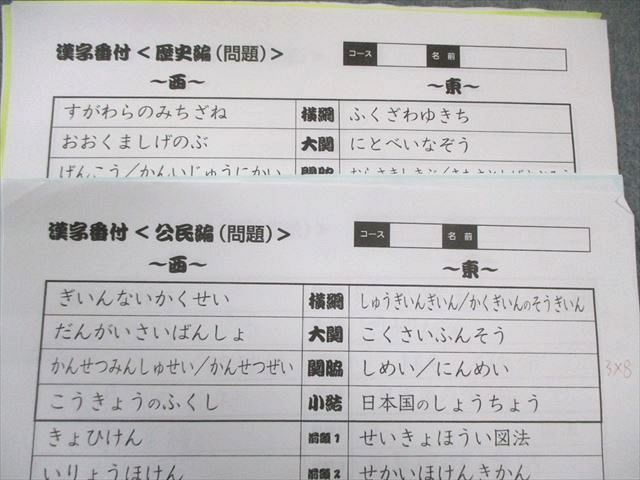 漢字番付＜歴史編(問題)＞
コース 名前
～西～ ～東～
すがわらのみちざね 横綱 ふくざわゆきち
おおくましげのぶ 大関 にとべいなぞう
げんこう/かんいじゅうにかい 関脇
漢字番付＜公民編(問題)＞
コース 名前
～西～ ～東～
ぎいんないかくせい 横綱 しゅうぎいんぎいん/かくぎいんのそうぎいん
だんがいさいばんしょ 大関 こくさいふんそう
かんせつみんしゅせい/かんせつぜい 関脇 しめい/にんめい
3×8
こうきょうのふくし 小結 日本国のしょうちょう
きょひけん 前頭1 せいきょほうい図法
いりょうほけん 前頭2 せかいほけんきかん